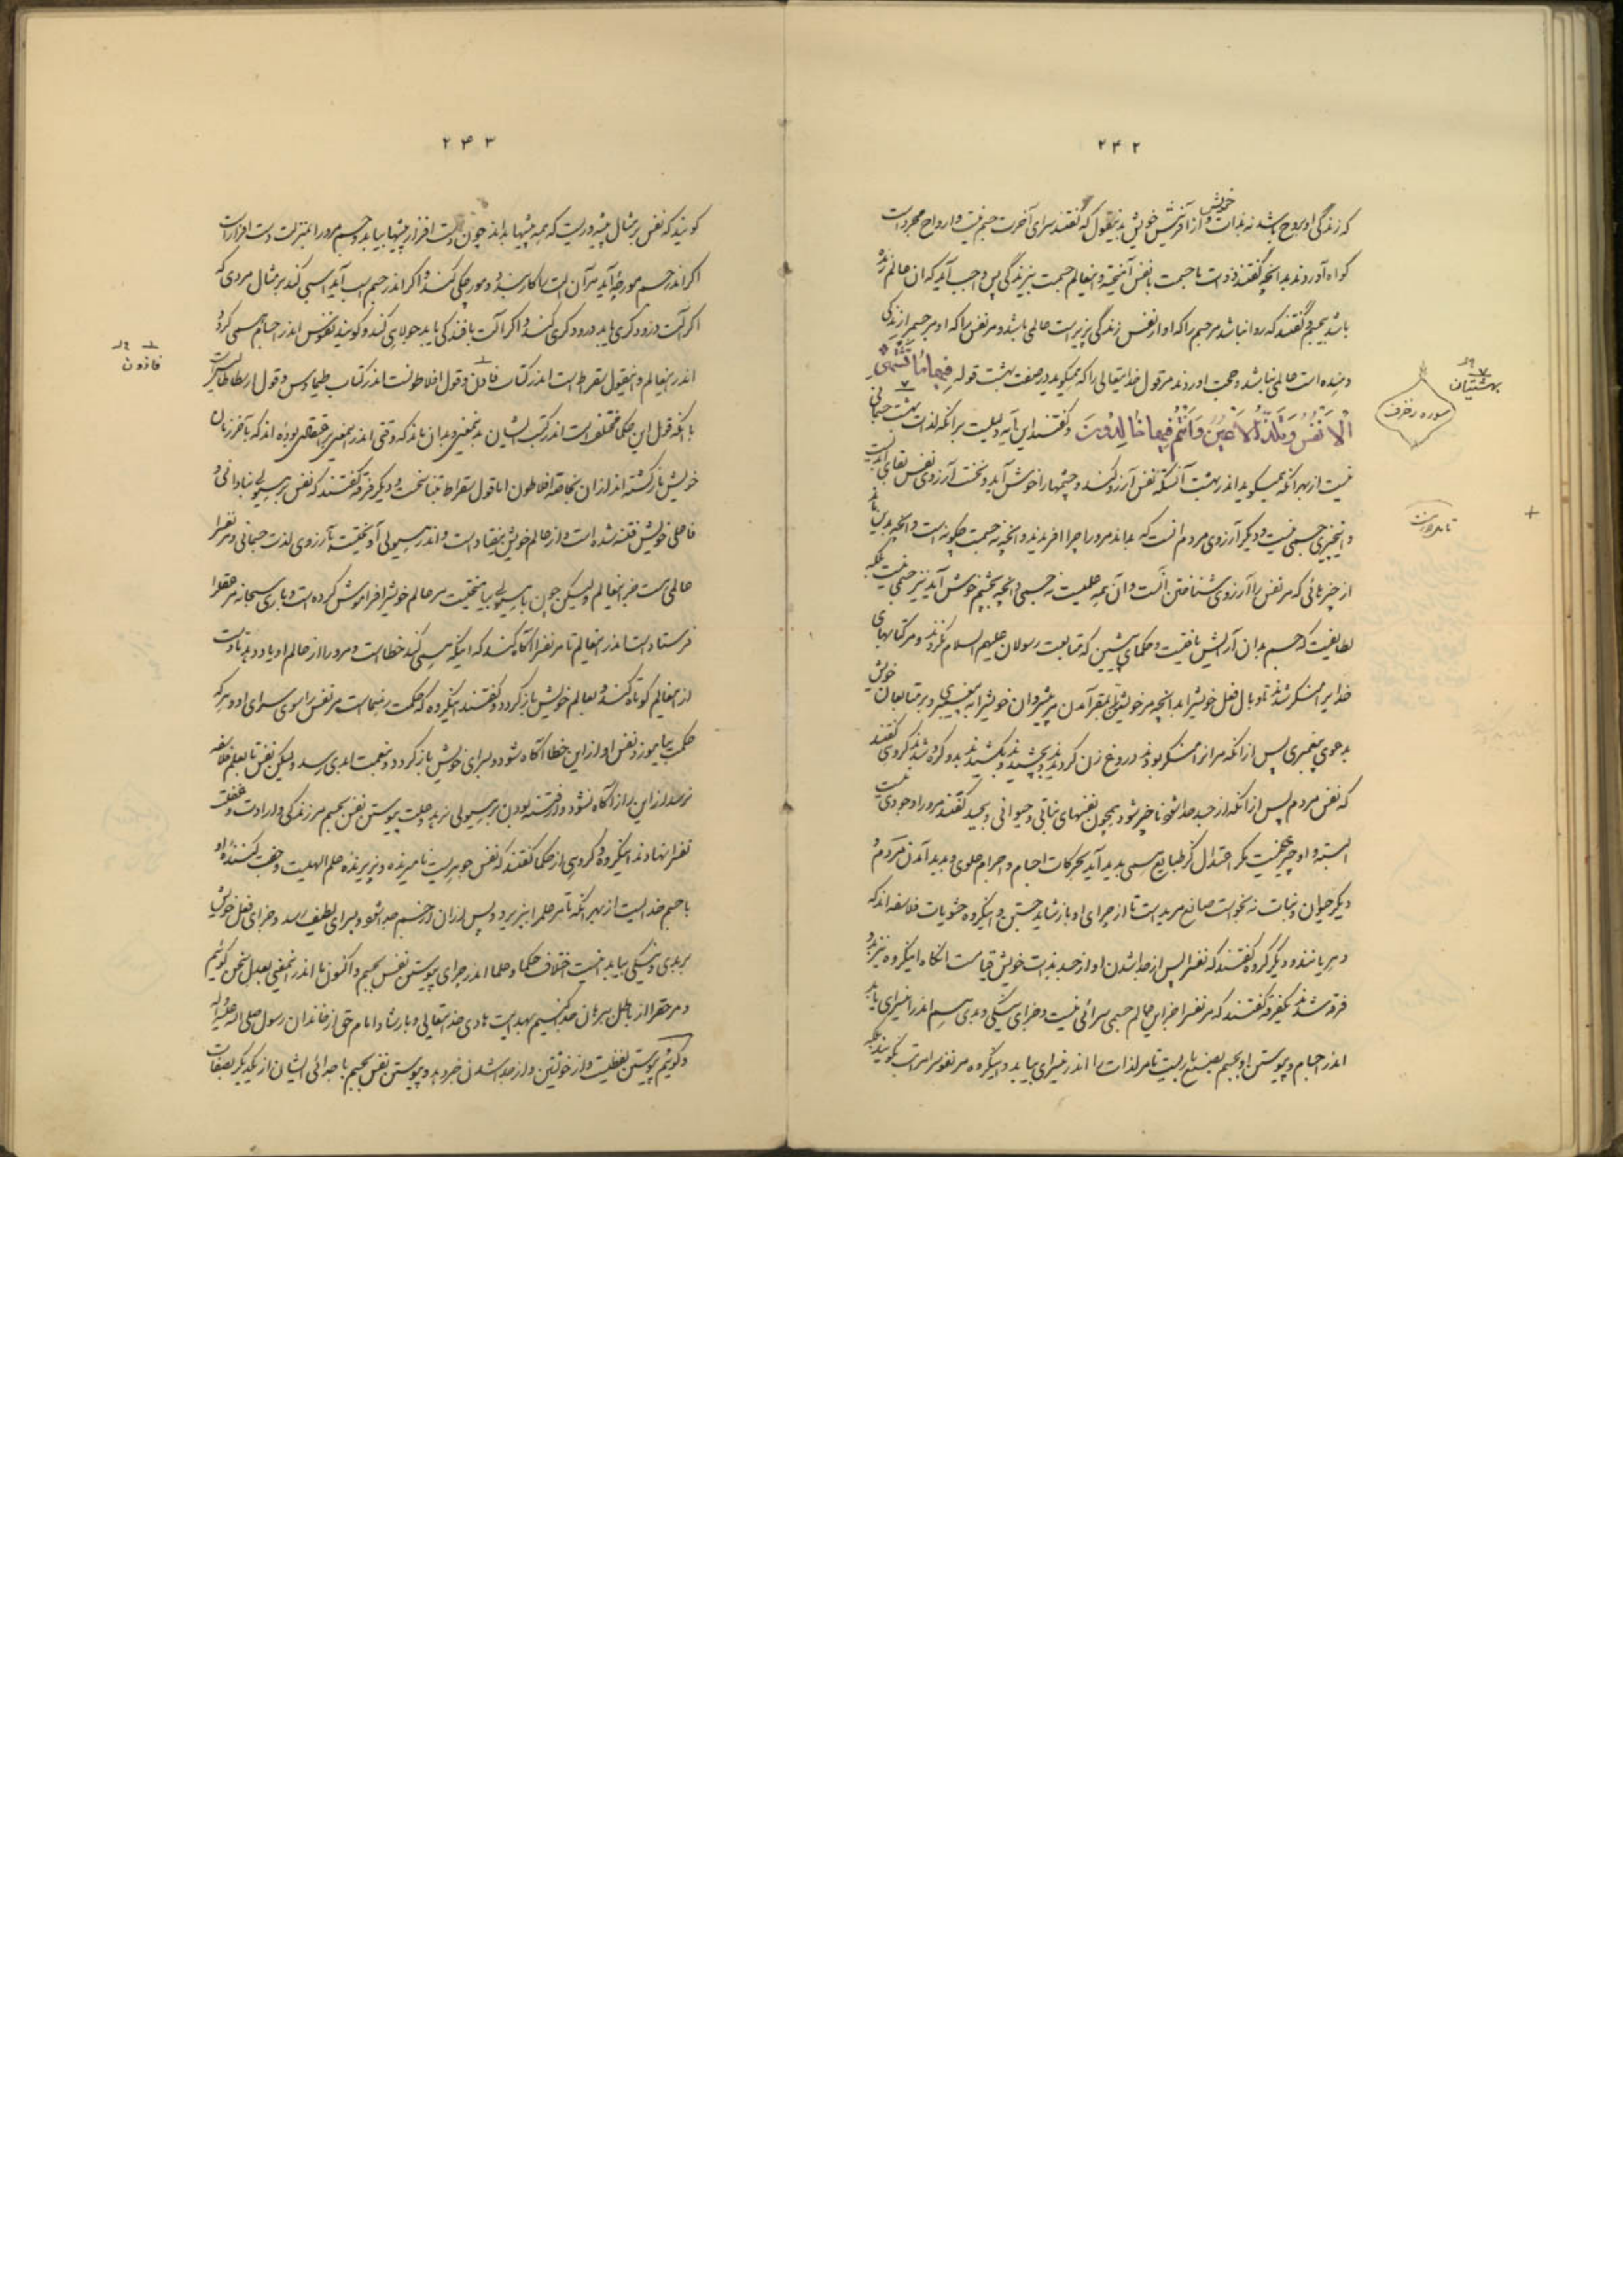 ۲۴۲
که زندگی او بروح باشد نه بذات خویش و از آفرینش خویش بدینقول که گفتند سرای آخرت جسم نیست و ارواح مجرد است
گواه آوردند بدانچه گفتند دوست با جسمت با نفس آمیخته و اینعالم جسمت بیزندگی پس واجب آید که آن عالم زنده
باشد بیجسم و گفتند که روا نباشد مر جسم را که او از نفس زندگی پذیر است عالمی باشد و مر نفس را که او مر جسم را زندگی
دهنده است عالمی نباشد و حجت آوردند مر قول خدایتعالی را که همیگوید در صفت بهشت قوله فیها ما تشتهی
الانفس و تلذ الاعین و انتم فیها خالدون و گفتند این آیه دلیلست بر آنکه لذات بهشت جسمانی
نیست از بهر آنکه همیگوید اندر بهشت آنستکه نفس آرزو کند و چشمها را خوش آید و نخست آرزوی نفس بقای ابدیست
و اینچیزی جسمی نیست و دیگر آرزوی مردم آنست که بداند مر او را چرا آفریدند و آنچه نه جسمت چگونه است و آنچه بدین ماند
از چیزهائی که مر نفس را آرزوی شناختن آنست و آن همه علمیست نه جسمی و آنچه بچشم خوش آید نیز جسمی نیست بلکه
لطایفیست که جسم بدان آرایش یافتیست و حکمای پیشین که متابعت رسولان علیهم السلام نکردند و مر کتابهای
خدایرا منکر شدند تا وبال فعل خویش را بدانچه مر خویشتن را مقر آمدن بر پیشروان خویش را به پیغمبری و بر متابعان خویش
بدعوی پیغمبری پس از آنکه مر آنرا منکر بودند دروغ زن کردند بچشیدند و بکشیدند بدو گروه شدند گروهی گفتند
که نفس مردم پس از آنکه از جسد جدا شود ناچیز شود همچون نفسهای نباتی و حیوانی و بیجسد گفتند مر او را وجودی نیست
البته و او چیز حقیقیست مگر اعتدال کز طبایع همی پدید آید بحرکات اجسام و اجرام علوی و پدید آمدن مردم و
دیگر حیوان و نبات نه بخواست صانع مرید است تا از چرای او باز شاید جستن و اینگروه حشویات فلاسفه اند که
دهریانند و دیگر گروه گفتند که نفس را پس از جدا شدن او از جسد بذات خویش قیامست آنگاه اینگروه نیز بدو
فرقه شدند یکفرقه گفتند که مر نفس را جز این عالم جسمی سرائی نیست و جزای نیکی و بدی هم اندر اینسرای یابد
اندر اجسام و پیوستن او بجسم بصنع باریست تا مر لذات را اندر اینسرای بیابد و اینگروه مر نفوس را مراتب گویند بلکه
بهشتیان
سوره زخرف
۲۴۳
گویند که نفس بر مثال پیشه وریست که همه پیشها بداند چون دست افزار پیشها بیابد و جسم مر او را بمنزلت دست افزار است
اگر اندر جسم مورچه آید مر آن آلت را کار بندد و مورچگی کند و اگر اندر جسم اسب آید اسبی کند بر مثال مردی که
اگر آلت درودگری یابد درودگری کند و اگر آلت بافندگی یابد جولاهی کند و گویند نفوس اندر اجسام همی گردد
اندر اینعالم و اینقول سقراط است اندر کتاب فاذن و قول افلاطونست اندر کتاب طیماوس و قول ارسطاطالیس است
با آنکه قول این حکما مختلف است اندر کتب ایشان بدینمعنی و بدان ماند که وقتی اندر اینمعنی بر اعتقادی بوده اند که بآخر زمان
خویش بازگشته اند از آن بخاصه افلاطون اما قول سقراط بتناسخست و دیگر فرقه گفتند که نفس بر هیولی بنادانی و
غافلی خویش فتنه شده است و از عالم خویش بیفتاد است و اندر هیولی آویختست بآرزوی لذت جسمانی و مر نفس را
عالمی هست جز اینعالم ولیکن چون با هیولی بیامیختیست مر عالم خویش را فراموش کرده است و باری سبحانه مر عقل را
فرستاد است اندر اینعالم تا مر نفس را آگاه کند که اینکه همی کند خطاست و مر او را از عالم او یاد دهد تا دست
از اینعالم کوتاه کند و بعالم خویش باز گردد و گفتند اینگروه که حکمت رهنماست مر نفس را سوی سرای او و هر که
حکمت بیاموزد نفس او از این خطا آگاه شود و بسرای خویش باز گردد و بنعمت ابدی رسد ولیکن نفس تا بعلم فلاسفه
نرسد از این راز آگاه نشود و از فتنه بودن بر هیولی نرهد و علت پیوستن نفس بجسم مر زندگی و ارادت و غفلت
نفس را نهادند اینگروه و گروهی از حکما گفتند که نفس جوهریست نامیرنده و پذیرنده علم الهیست و جفت کننده او
با جسم خدایست از بهر آنکه تا مر علم را بپذیرد و پس از آن از جسم جدا شود و بسرای لطیف رسد و جزای فعل خویش
بر بدی و نیکی بیابد اینست اختلاف حکما و علما اندر چرای پیوستن نفس بجسم و اکنون ما اندر اینمعنی بعدل سخن گوئیم
و مر حق را از باطل ببرهان جدا کنیم بهدایت هادی خدایتعالی و بارشاد امام حق از خاندان رسول صلی الله علیه و آله
و گوئیم پیوستن لفظیست و از خوانتین و از جدا شدن خبر دهد و پیوستن نفس بجسم با جدائی ایشان از یکدیگر بصفات
فاذون